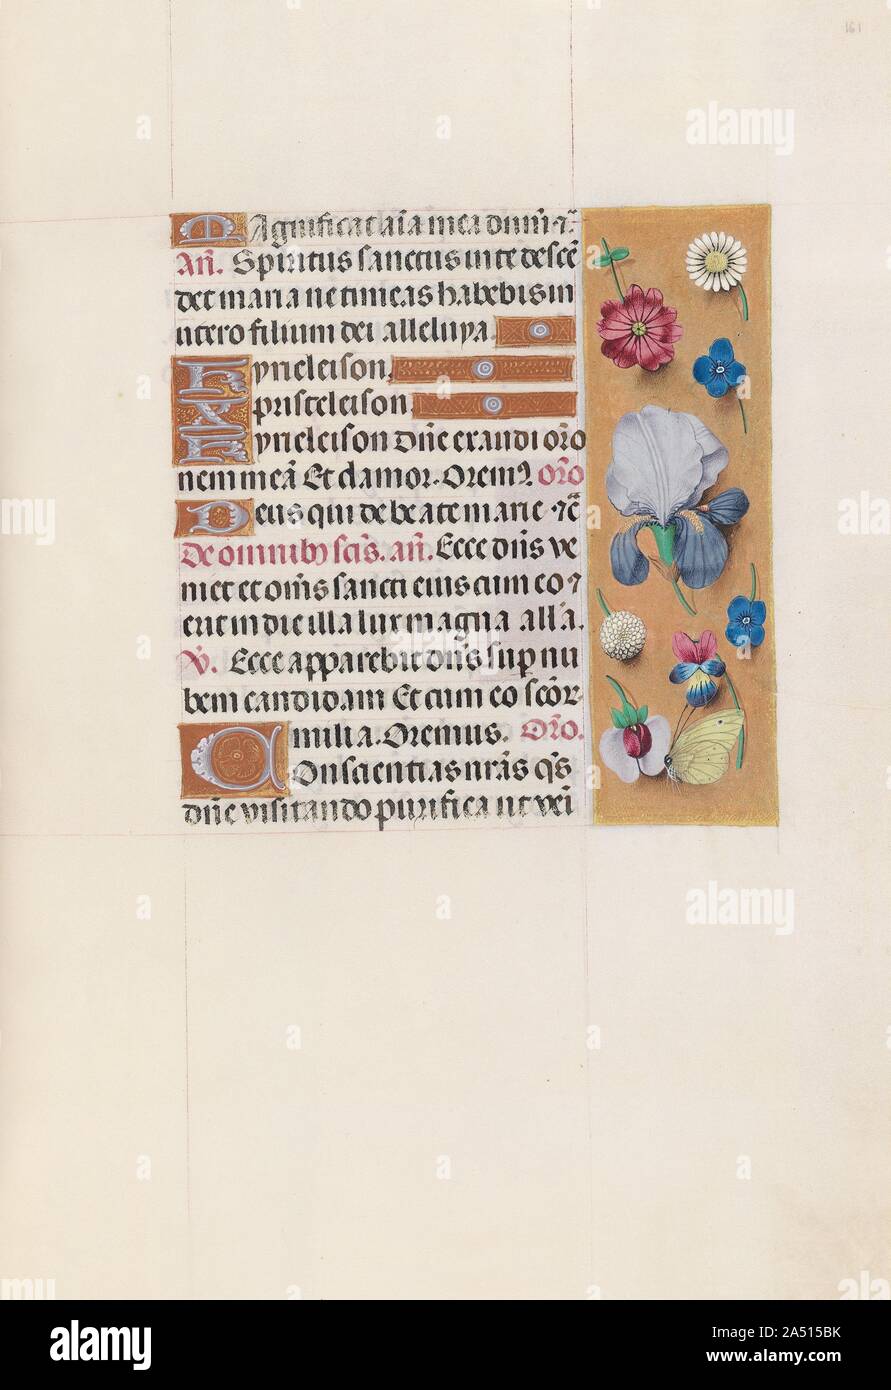 161
Magnificat aīa mea dnm̄ ⁊c̄
Añ. Spiritus sanctus in te descē
det maria ne timeas habebis in
utero filium dei alleluya.
Kyrieleison.
Xpristeleison.
Kyrieleison Dñe exaudi orō
nem meā Et clamor. Oremꝰ. orō
Deus qui de beate marie ⁊c̄
De omnibꝫ scīs. añ. Ecce dñs ve
niet et om̄s sancti eius cum eo ⁊
erit in die illa lux magna all'a.
℣. Ecce apparebit dñs sup nu
bem candidam Et cum eo scōꝝ
milia. Oremus. Orō.
Conscientias nr̄as q̄s
dñe visitando purifica ut vei
alamy
Image ID: 2A515BK
www.alamy.com